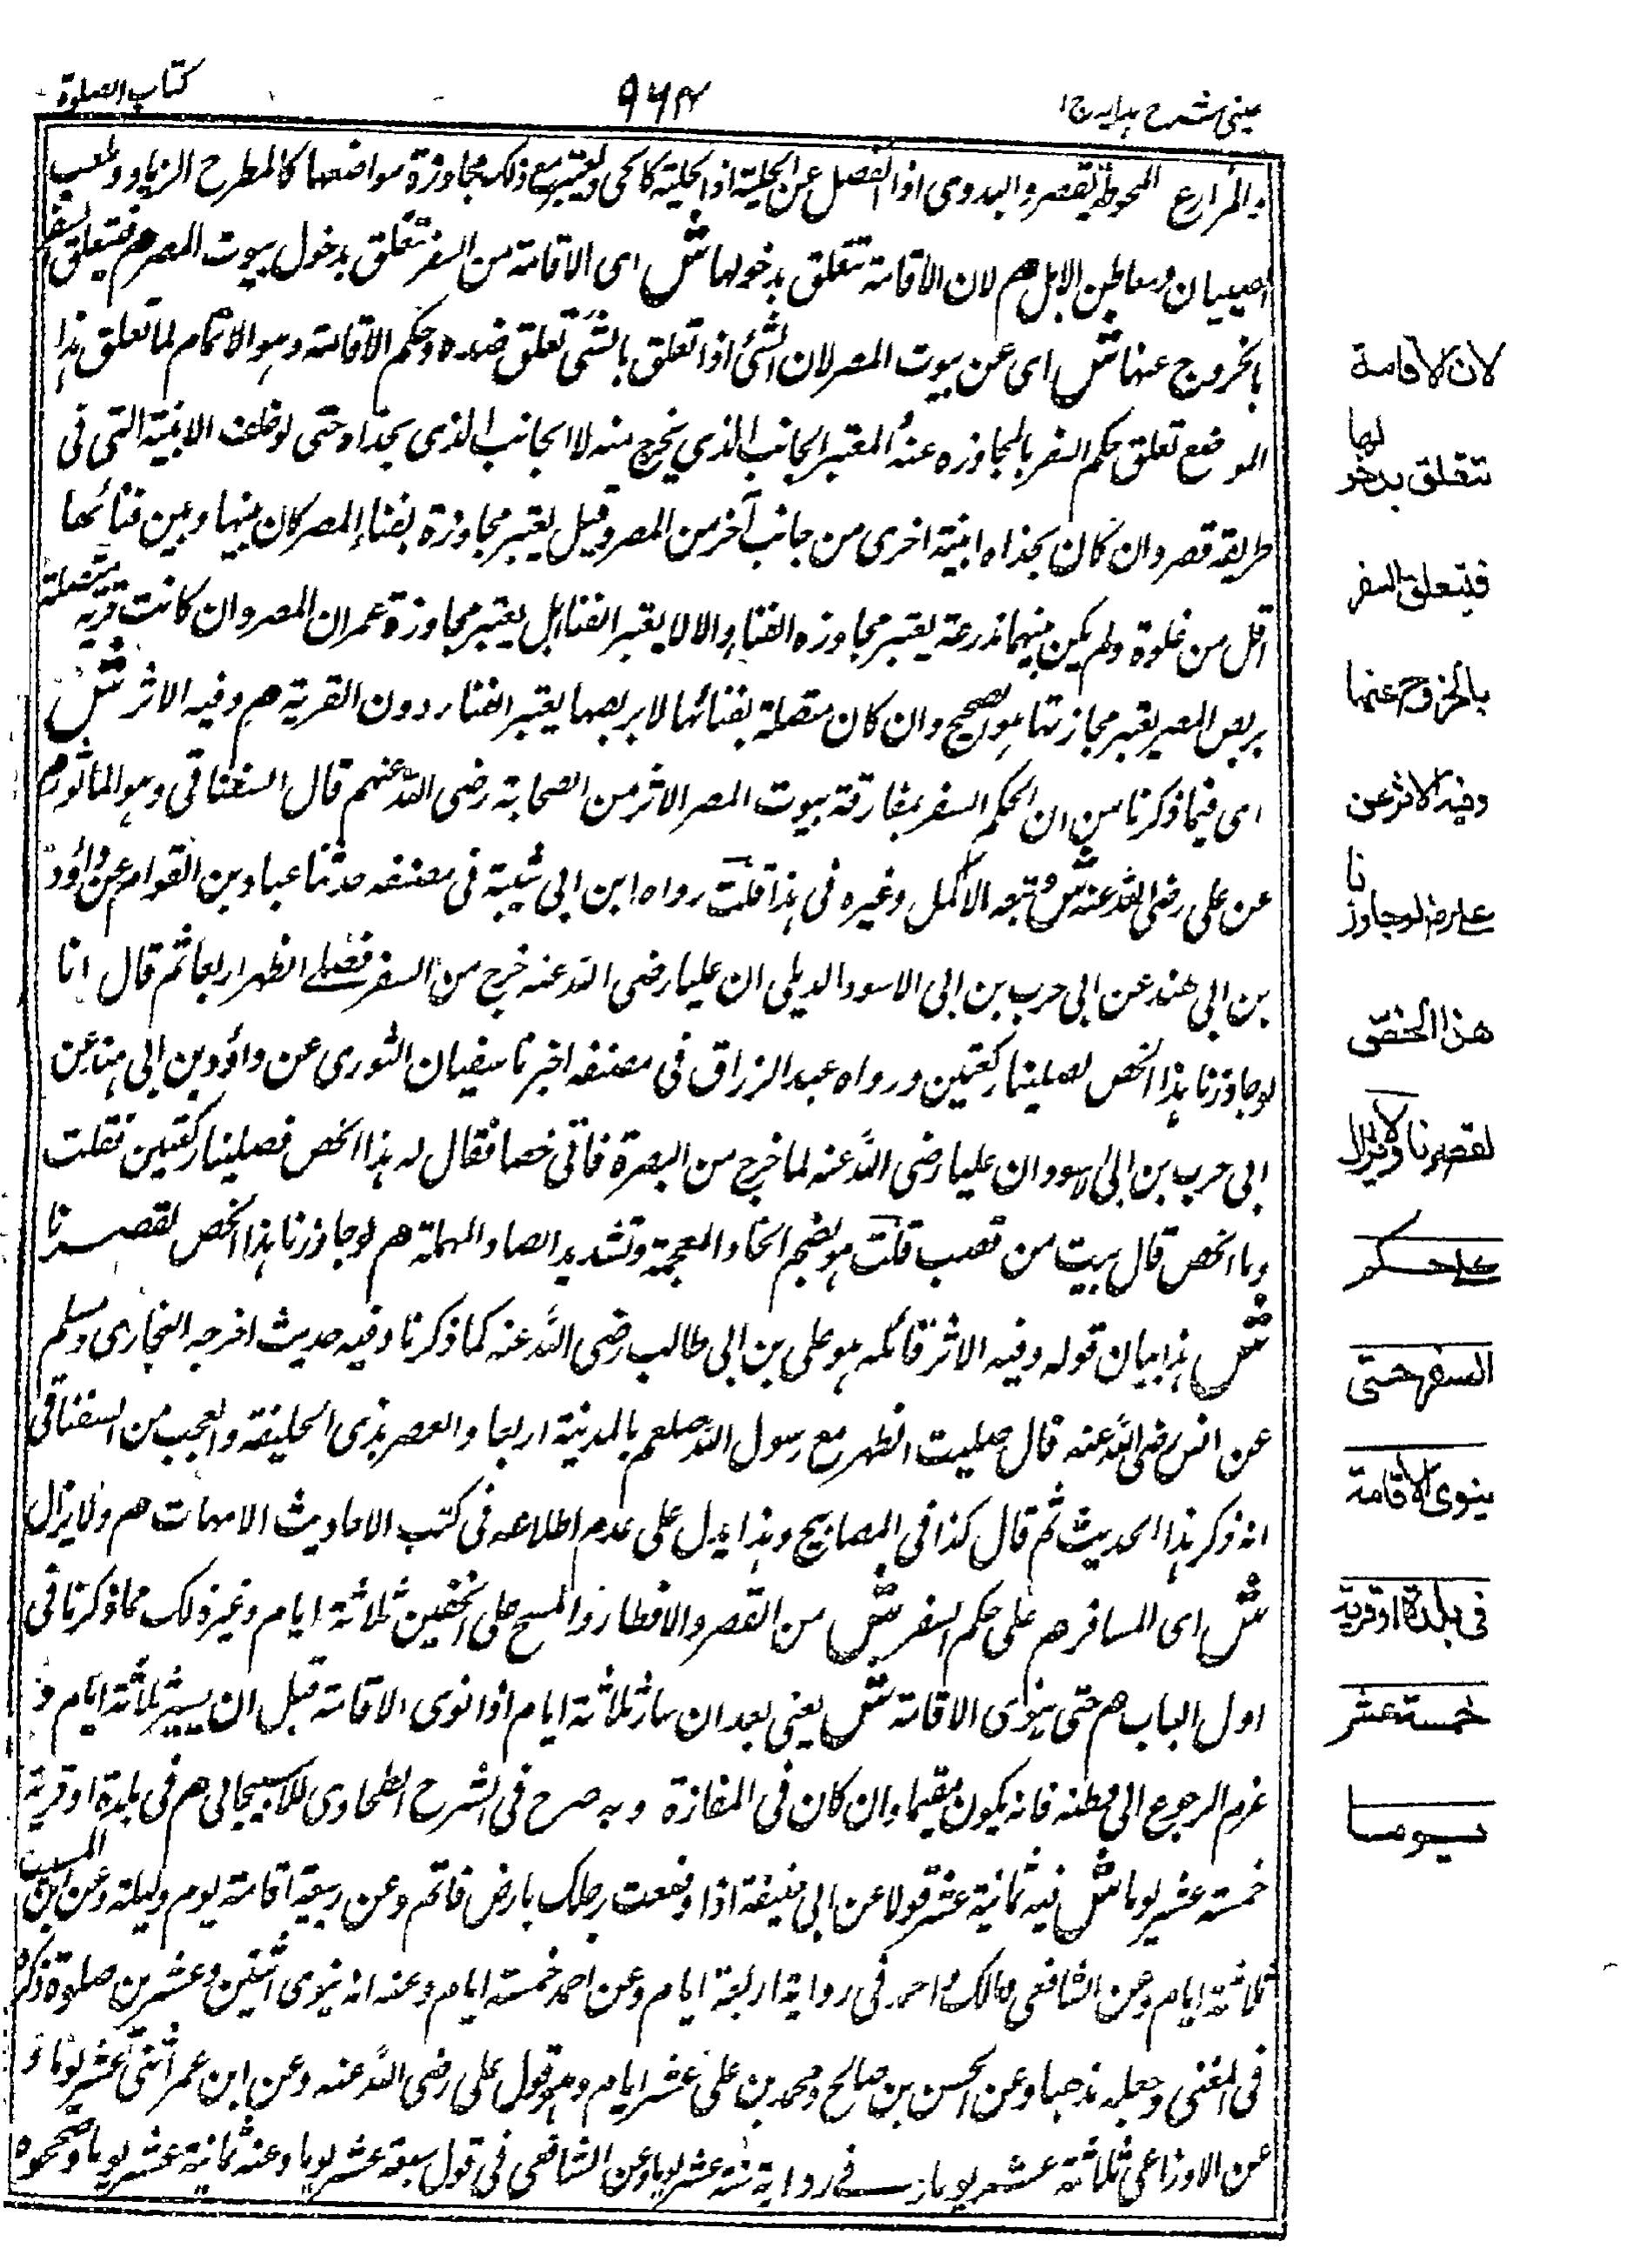 عینی شرح ہدایہ ج ۱
۹۶۴
کتاب الصلوة
المزارع المحوطة يقصر والبدوى اذا انفصل عن الحلية اذ الحلية كالحى ويعتبر مع ذلك مجاوزة مواضعها كالمطرح الزباد وملعب
الصبيان ومعاطن الابل هم لان الاقامة تتعلق بدخولها ش اى الاقامة من السفر تتعلق بدخول بيوت المصر هم فيتعلق السفر
بالخروج عنها ش اى عن بيوت المصر لان الشئ اذا تعلق بالشئ تعلق ضده وحكم الاقامة وهو الاتمام لما تعلق بهذا
الموضع تعلق حكم السفر بالمجاوزه عنه المعتبر الجانب الذي يخرج منه لا الجانب الذى بحذاه حتى لو خلف الابنية التى فى
طريقه قصر وان كان بحذاه ابنية اخرى من جانب آخر من المصر وقيل يعتبر مجاوزة بفناء المصر كان بينها وبين فنائها
اقل من غلوة ولم يكن بينهما مزرعة يعتبر مجاوزه الفناء والا لا يعتبر الفناء بل يعتبر مجاوزة عمران المصر وان كانت قرية متصلة
بربض المصر يعتبر مجاوزتها هو الصحيح وان كان متصلة بفنائها لا بربضها يعتبر الفناء دون القرية هم وفيه الاثر ش
اى فيما ذكرنا من ان الحكم السفر بمفارقة بيوت المصر الاثر من الصحابة رضى الله عنهم قال السغناقى وهو الماثور هم
عن على رضى الله عنه ش وتبعه الاكمل وغيره فى هذا قلت رواه ابن ابى شيبة فى مصنفه حدثنا عباد بن العوام عن داؤد
بن ابى هند عن ابى حرب بن ابى الاسود الديلى ان عليا رضى الله عنه خرج من السفر فصلے الظهر اربعا ثم قال انا
لو جاوزنا هذا الخص لصلينا ركعتين ورواه عبد الرزاق فى مصنفه اخبرنا سفيان الثورى عن داؤد بن ابى هند عن
ابى حرب بن ابى الاسود ان عليا رضى الله عنه لما خرج من البصرة فاتى خصا فقال له هذا الخص فصلينا ركعتين فقلت
وما الخص قال بيت من قصب قلت هو بضم الخاء المعجمة وتشديد الصاد المهملة هم لو جاوزنا هذا الخص لقصرنا
ش هذا بيان قوله وفيه الاثر قائله هو على بن ابى طالب رضى الله عنه كما ذكرنا وفيه حديث اخرجه البخارى ومسلم
عن انس رضى الله عنه قال صليت الظهر مع رسول الله صلعم بالمدينة اربعا والعصر بذى الحليفة والعجب من السغناقى
انه ذكر هذا الحديث ثم قال كذا فى المصابيح وهذا يدل على عدم اطلاعه فى كتب الاحاديث الامهات هم ولا يزال
ش اى المسافر هم على حكم السفر ش من القصر والافطار والمسح على الخفين ثلاثة ايام وغير ذلك مما ذكرنا فى
اول الباب هم حتى ينوى الاقامة ش يعنى بعد ان سار ثلاثة ايام اذا نوى الاقامة قبل ان يسير ثلاثة ايام و
عزم الرجوع الى وطنه فانه يكون مقيما وان كان فى المفازة وبه صرح فى الشرح الطحاوى للاسبيجابى هم فى بلدة او قرية
خمسة عشر يوما ش فيه ثمانية عشر قولا عن ابى حنيفة اذا وضعت رجلك بارض فاتم وعن ربيعة اقامة يوم وليلة وعن ابن المسيب
ثلاثة ايام وعن الشافعى ومالك واحمد فى رواية اربعة ايام وعن احمد خمسة ايام وعنه انه ينوى اثنين وعشرين صلوة ذكره
فى المغنى وجعله مذهبا وعن الحسن بن صالح ومحمد بن على عشر ايام وهو قول على رضى الله عنه وعن ابن عمر اثنى عشر يوما و
عن الاوزاعى ثلاثة عشر يوما وفے رواية ستة عشر يوما وعن الشافعى فى قول سبعة عشر يوما وعنه ثمانية عشر يوما وصححوه
لان الاقامة
تتعلق بدخولها
فيتعلق السفر
بالخروج عنها
وفيه الاثر عن
علے رض لو جاوزنا
هذا الخصّ
لقصرنا ولا يزال
علے حكم
السفر حتى
ينوى الاقامة
فى بلدة او قرية
خمسة عشر
يوما